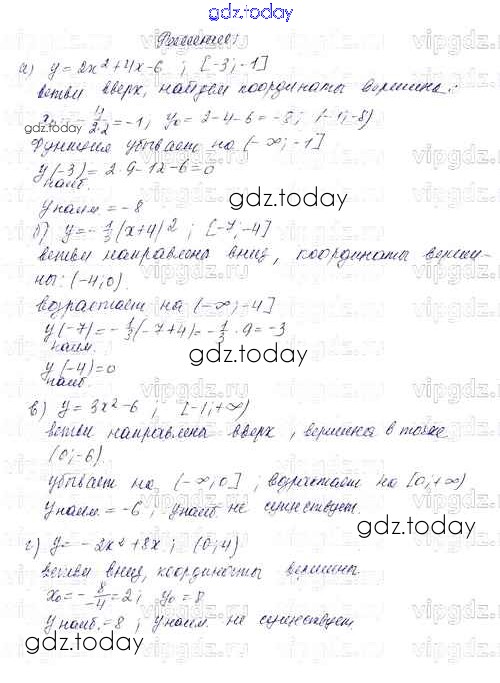 gdz.today
Решение:
а) y = 2x² + 4x - 6 ; [-3; -1]
ветви вверх, найдем координаты вершины:
x₀ = - 4/2·2 = -1, y₀ = 2 - 4 - 6 = -8; (-1; -8)
gdz.today
Функция убывает на (-∞; -1]
y(-3) = 2·9 - 12 - 6 = 0
наиб.
gdz.today
y наим = -8
б) y = - 1/3 (x+4)² ; [-7; -4]
ветви направлены вниз, координаты верши-
ны: (-4; 0).
возрастает на (-∞; -4]
gdz.today
y(-7) = - 1/3 (-7+4) = - 1/3 · 9 = -3
наим.
gdz.today
y(-4) = 0
наиб.
в) y = 3x² - 6 ; [-1; +∞)
ветви направлены вверх, вершина в точке
(0; -6).
убывает на (-∞; 0] ; возрастает на [0; +∞)
y наим. = -6 ; y наиб. не существует.
gdz.today
г) y = - 2x² + 8x ; (0; 4)
ветви вниз, координаты вершины.
x₀ = - 8/-4 = 2 ; y₀ = 8
y наиб. = 8 ; y наим. не существует
gdz.today